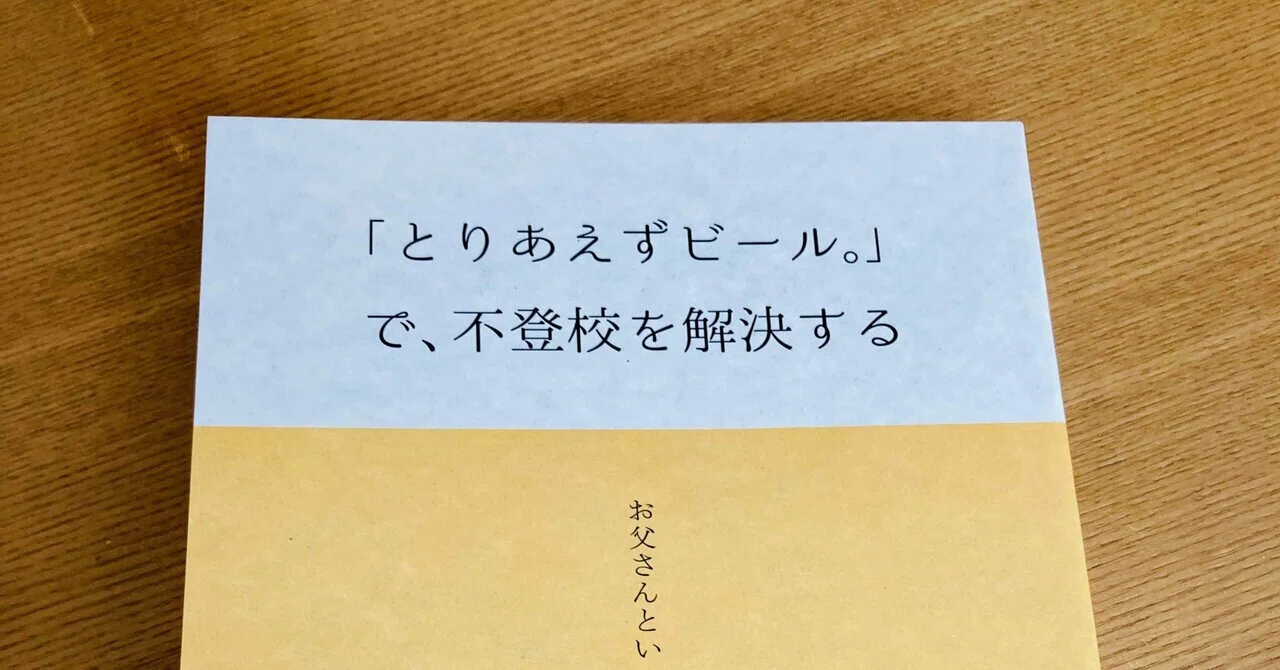 「とりあえずビール。」
で、不登校を解決する
お父さんとい